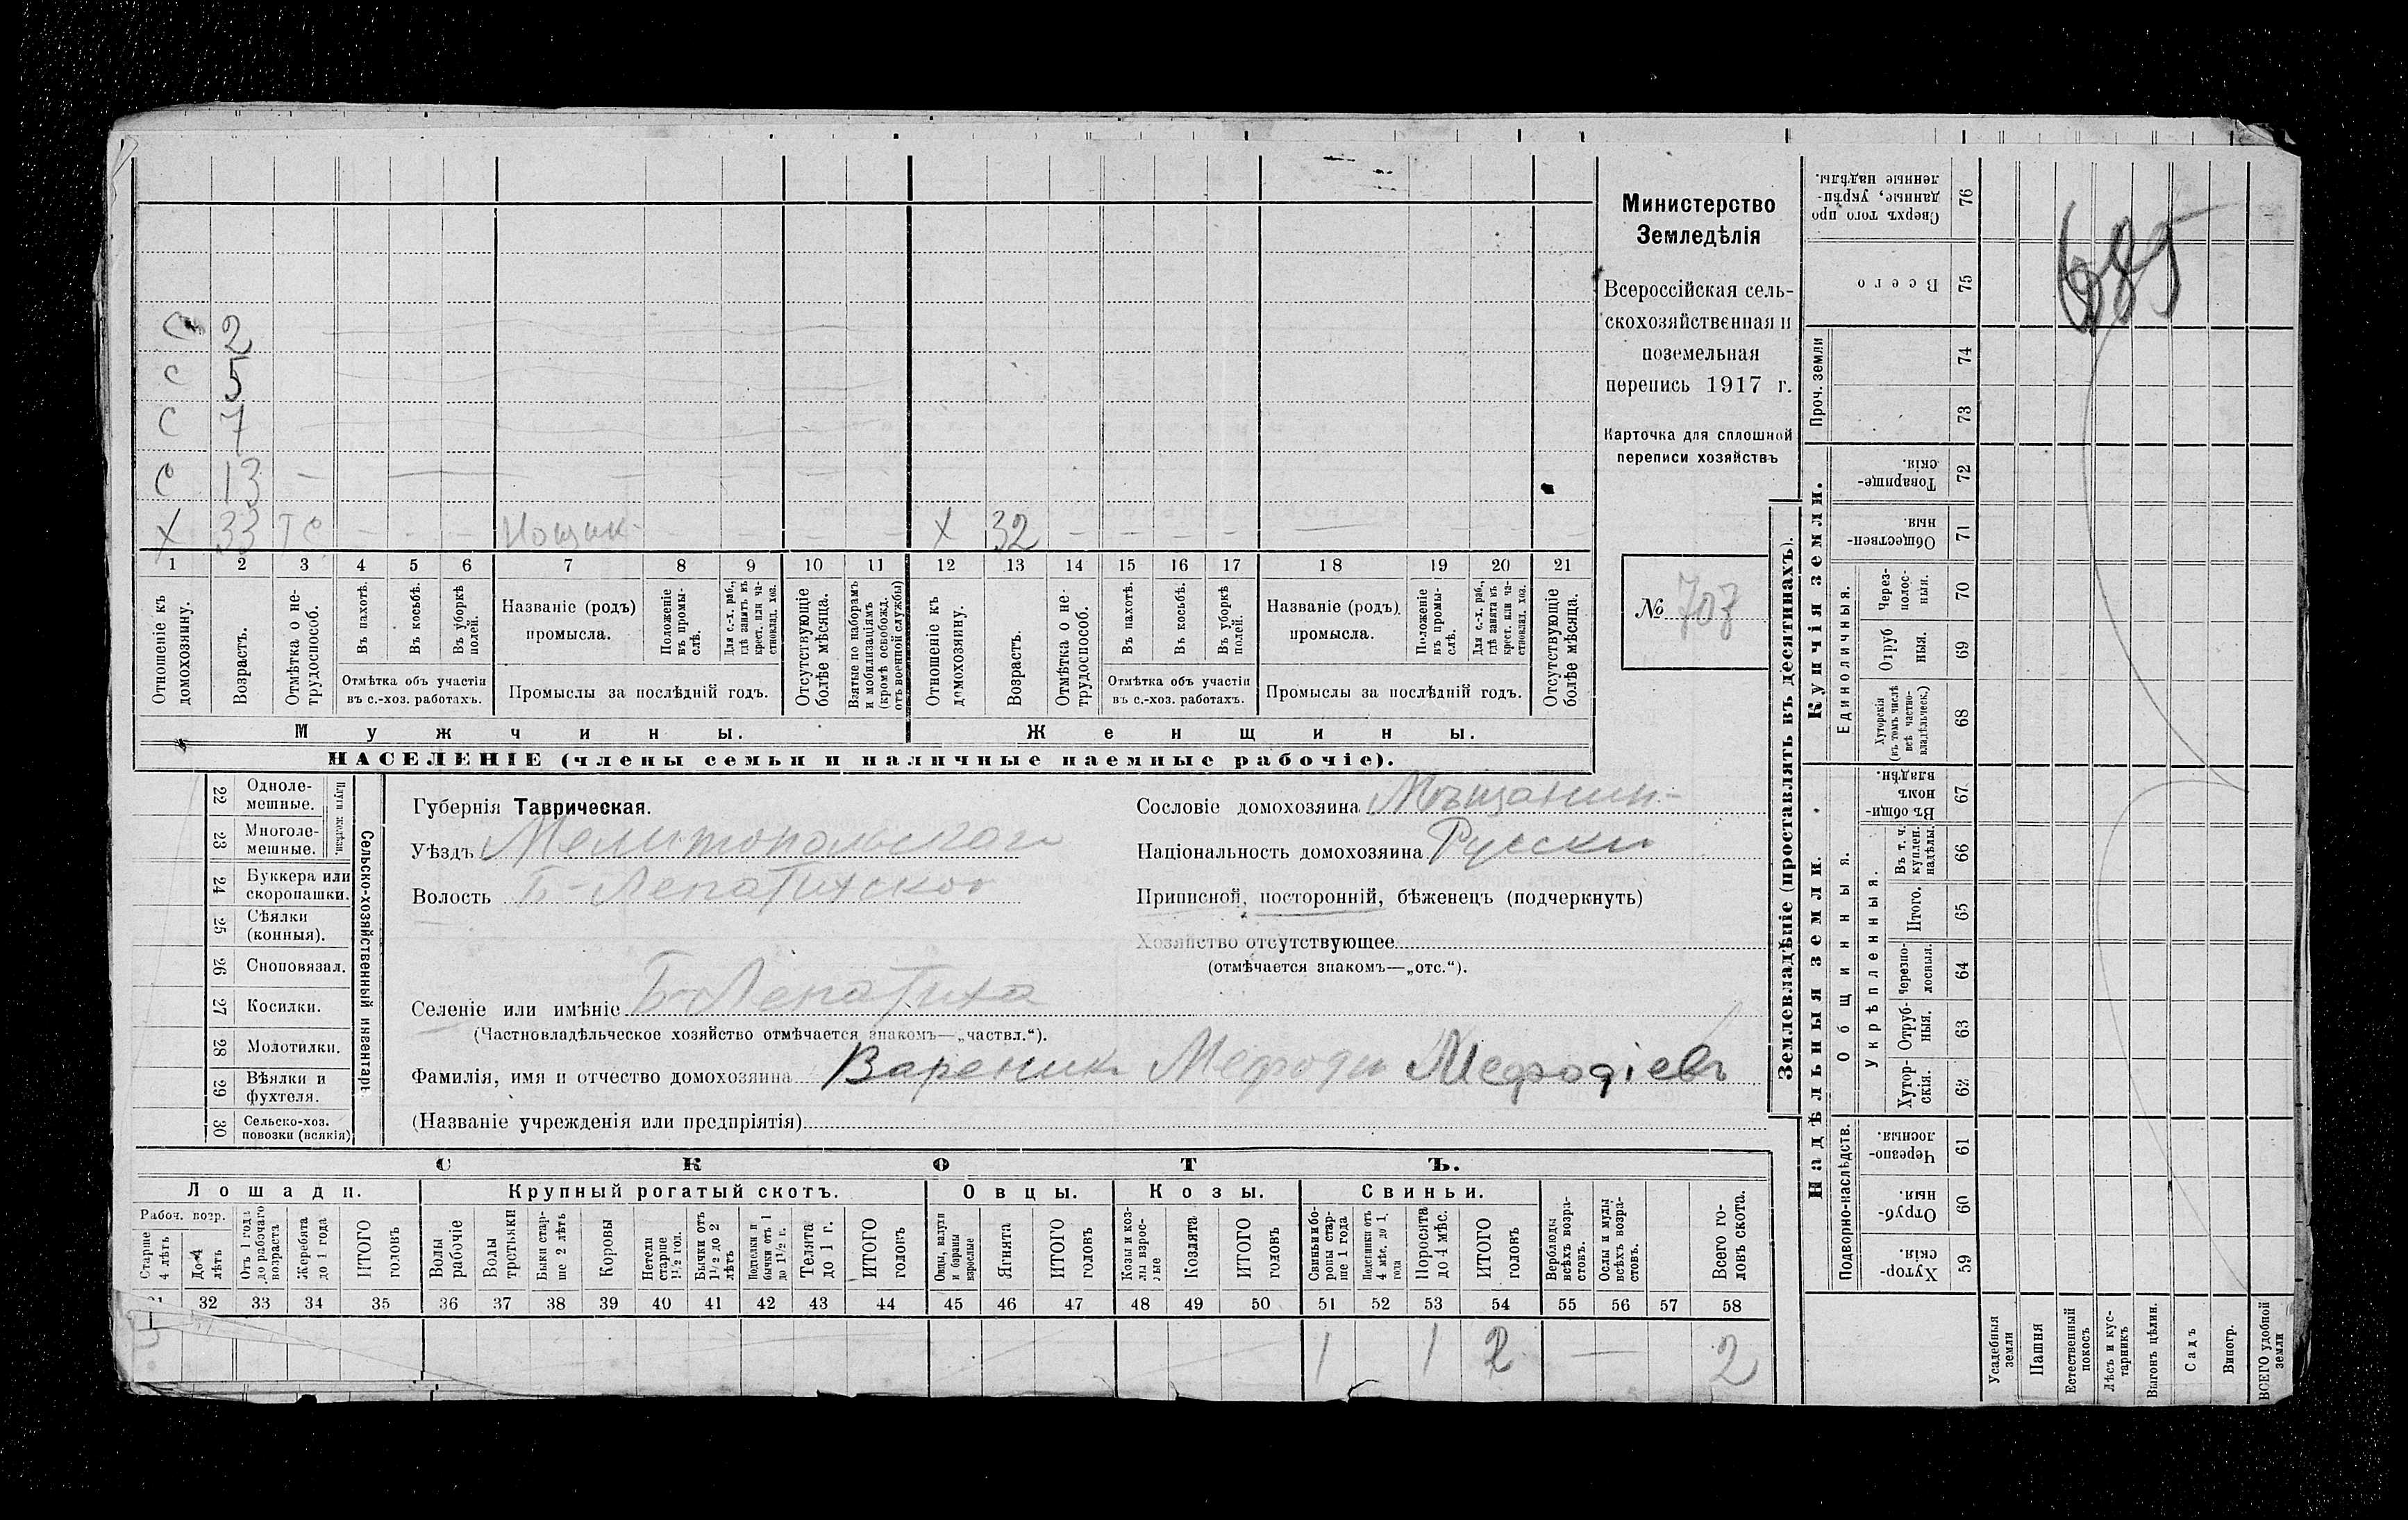 С 2
С 5
С 7
С 13 —
Х 33
Х 32
1 2 3 4 5 6 7 8 9 10 11 12 13 14 15 16 17 18 19 20 21
Отношеніе къ домохозяину.
Возрастъ.
Отмѣтка о не-трудоспособ.
Въ пахотѣ.
Въ косьбѣ.
Въ уборкѣ полей.
Отмѣтка объ участіи въ с.-хоз. работахъ.
Названіе (родъ) промысла.
Положеніе въ промы-слѣ.
Для с.-х. раб., гдѣ занятъ въ крест. или ча-стновлад. хоз.
Промыслы за послѣдній годъ.
Отсутствующіе болѣе мѣсяца.
Взятые по наборамъ и мобилизаціямъ (кромѣ освобожд. отъ военной службы)
Отношеніе къ домохозяину.
Возрастъ.
Отмѣтка о не-трудоспособ.
Въ пахотѣ.
Въ косьбѣ.
Въ уборкѣ полей.
Отмѣтка объ участіи въ с.-хоз. работахъ.
Названіе (родъ) промысла.
Положеніе въ промы-слѣ.
Для с.-х. раб., гдѣ занята въ крест. или ча-стновлад. хоз.
Промыслы за послѣдній годъ.
Отсутствующіе болѣе мѣсяца.
Мужчины.
Женщины.
НАСЕЛЕНІЕ (члены семьи и наличные наемные рабочіе).
Министерство
Земледѣлія
Всероссійская сель-
скохозяйственная и
поземельная
перепись 1917 г.
Карточка для сплошной
переписи хозяйствъ
№ 703
22 Одноле-мешные.
23 Многоле-мешные.
Плуги желѣзн.
24 Буккера или скоропашки.
25 Сѣялки (конныя).
26 Сноповязал.
27 Косилки.
28 Молотилки.
29 Вѣялки и фухтеля.
30 Сельско-хоз. повозки (всякія)
Сельско-хозяйственный инвентарь
Губернія Таврическая.
Уѣздъ Мелитопольскаго
Волость Б-Лепатихской
Селеніе или имѣніе Б-Лепатиха
(Частновладѣльческое хозяйство отмѣчается знакомъ—„частвл.“).
Фамилія, имя и отчество домохозяина Вареник Мефоди Мефодіевъ
(Названіе учрежденія или предпріятія)
Сословіе домохозяина Мѣщанин
Національность домохозяина Русски
Приписной, посторонній, бѣженецъ (подчеркнуть)
Хозяйство отсутствующее
(отмѣчается знакомъ—„отс.“).
СКОТЪ.
Лошади.
Крупный рогатый скотъ.
Овцы.
Козы.
Свиньи.
Рабоч. возр.
Старше 4 лѣтъ
До 4 лѣтъ
Отъ 1 года до рабочаго возраста
Жеребята до 1 года
ИТОГО головъ
Волы рабочіе
Волы третьяки
Быки стар-ше 2 лѣтъ
Коровы
Нетели старше 1½ год.
Бычки отъ 1½ до 2 лѣтъ
Подтелки и бычки отъ 1 до 1½ г.
Телята до 1 г.
ИТОГО головъ
Овцы, валухи и бараны взрослые
Ягнята
ИТОГО головъ
Козы и коз-лы взрос-лые
Козлята
ИТОГО головъ
Свиньи и бо-ровы стар-ше 1 года
Подсвинки отъ 4 мѣс. до 1 года
Поросята до 4 мѣс.
ИТОГО головъ
Верблюды всѣхъ возра-стовъ.
Ослы и мулы всѣхъ возра-стовъ.
Всего го-ловъ скота.
32 33 34 35 36 37 38 39 40 41 42 43 44 45 46 47 48 49 50 51 52 53 54 55 56 57 58
1 1 2 — 2
Землевладѣніе (проставлять въ десятинахъ).
Купчія земли.
Надѣльныя земли.
Сверхъ того про-данные, укрѣп-ленные надѣлы. 76
Всего 75
Проч. земли
74
73
Товарище-скія. 72
Обществен-ныя. 71
Единоличныя.
Через-полос-ныя. 70
Отруб-ныя. 69
Хуторскія (въ томъ числѣ всѣ частно-владѣльческ.) 68
Общинныя.
Въ общи-номъ владѣн. 67
Укрѣпленныя.
Въ т. ч. куплен. надѣлы. 66
Итого. 65
Черезпо-лосныя. 64
Отруб-ныя. 63
Хутор-скія. 62
Подворно-наслѣдств.
Черезпо-лосныя. 61
Отруб-ныя. 60
Хутор-скія. 59
Усадебныя земли
Пашня
Естественный покосъ
Лѣсъ и кус-тарникъ
Выгонъ цѣлин.
Садъ
Виногр.
ВСЕГО удобной земли
685